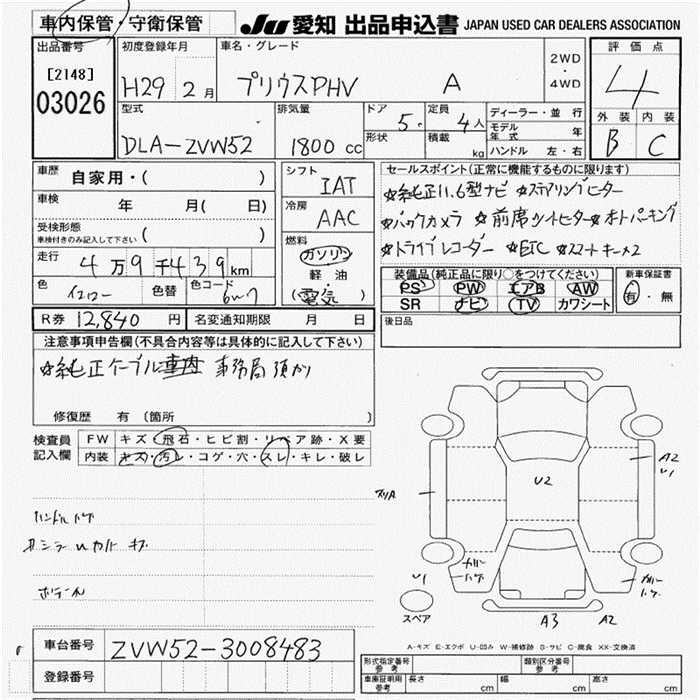 車内保管・守衛保管
JU 愛知 出品申込書 JAPAN USED CAR DEALERS ASSOCIATION
出品番号 初度登録年月 車名・グレード 2WD・4WD 評価点
[2148]
03026 H29 2月 プリウスPHV A 4
型式 排気量 ドア 5 定員 4人 ディーラー・並 行 外装 内装
DLA-ZVW52 1800cc 形状 積載 kg モデル年式 年 B C
ハンドル 左・右
車歴 自家用・( ) シフト IAT セールスポイント(正常に機能するものに限ります)
☆純正11.6型ナビ ☆ステアリングヒーター
車検 年 月( 日) 冷房 AAC ☆バックカメラ ☆前席シートヒーター ☆オートパーキング
受検形態 ( )
車検付きのみ記入して下さい
☆ドライブレコーダー ☆ETC ☆スマートキー×2
走行 4万9千439km 燃料 ガソリン 装備品(純正品に限り○をつけてください) 新車保証書
色 イエロー 色替 色コード 6W7 軽 油 PS PW エアB AW 有・無
(電気) SR ナビ TV カワシート
R券 12,840円 名変通知期限 月 日 後日品
注意事項申告欄(不具合内容等は具体的に記入して下さい)
☆純正ケーブル車内 事務局預かり
修復歴 有 〔箇所 〕
検査員 FW キズ・飛石・ヒビ割・リペア跡・X要
記入欄 内装 キズ・汚レ・コゲ・穴・スレ・キレ・破レ
A2
U1
U2
スリA
ハンドルハゲ
カリハゲ
U1
スペア
A3 A2
A-キズ E-エクボ U-凹み W-補修跡 S-サビ C-腐食 XX-交換済
車台番号 ZVW52-3008483
登録番号
形式指定番号 参考 類別区分番号 参考
車庫証明用 参考 長さ cm 幅 cm 高さ cm